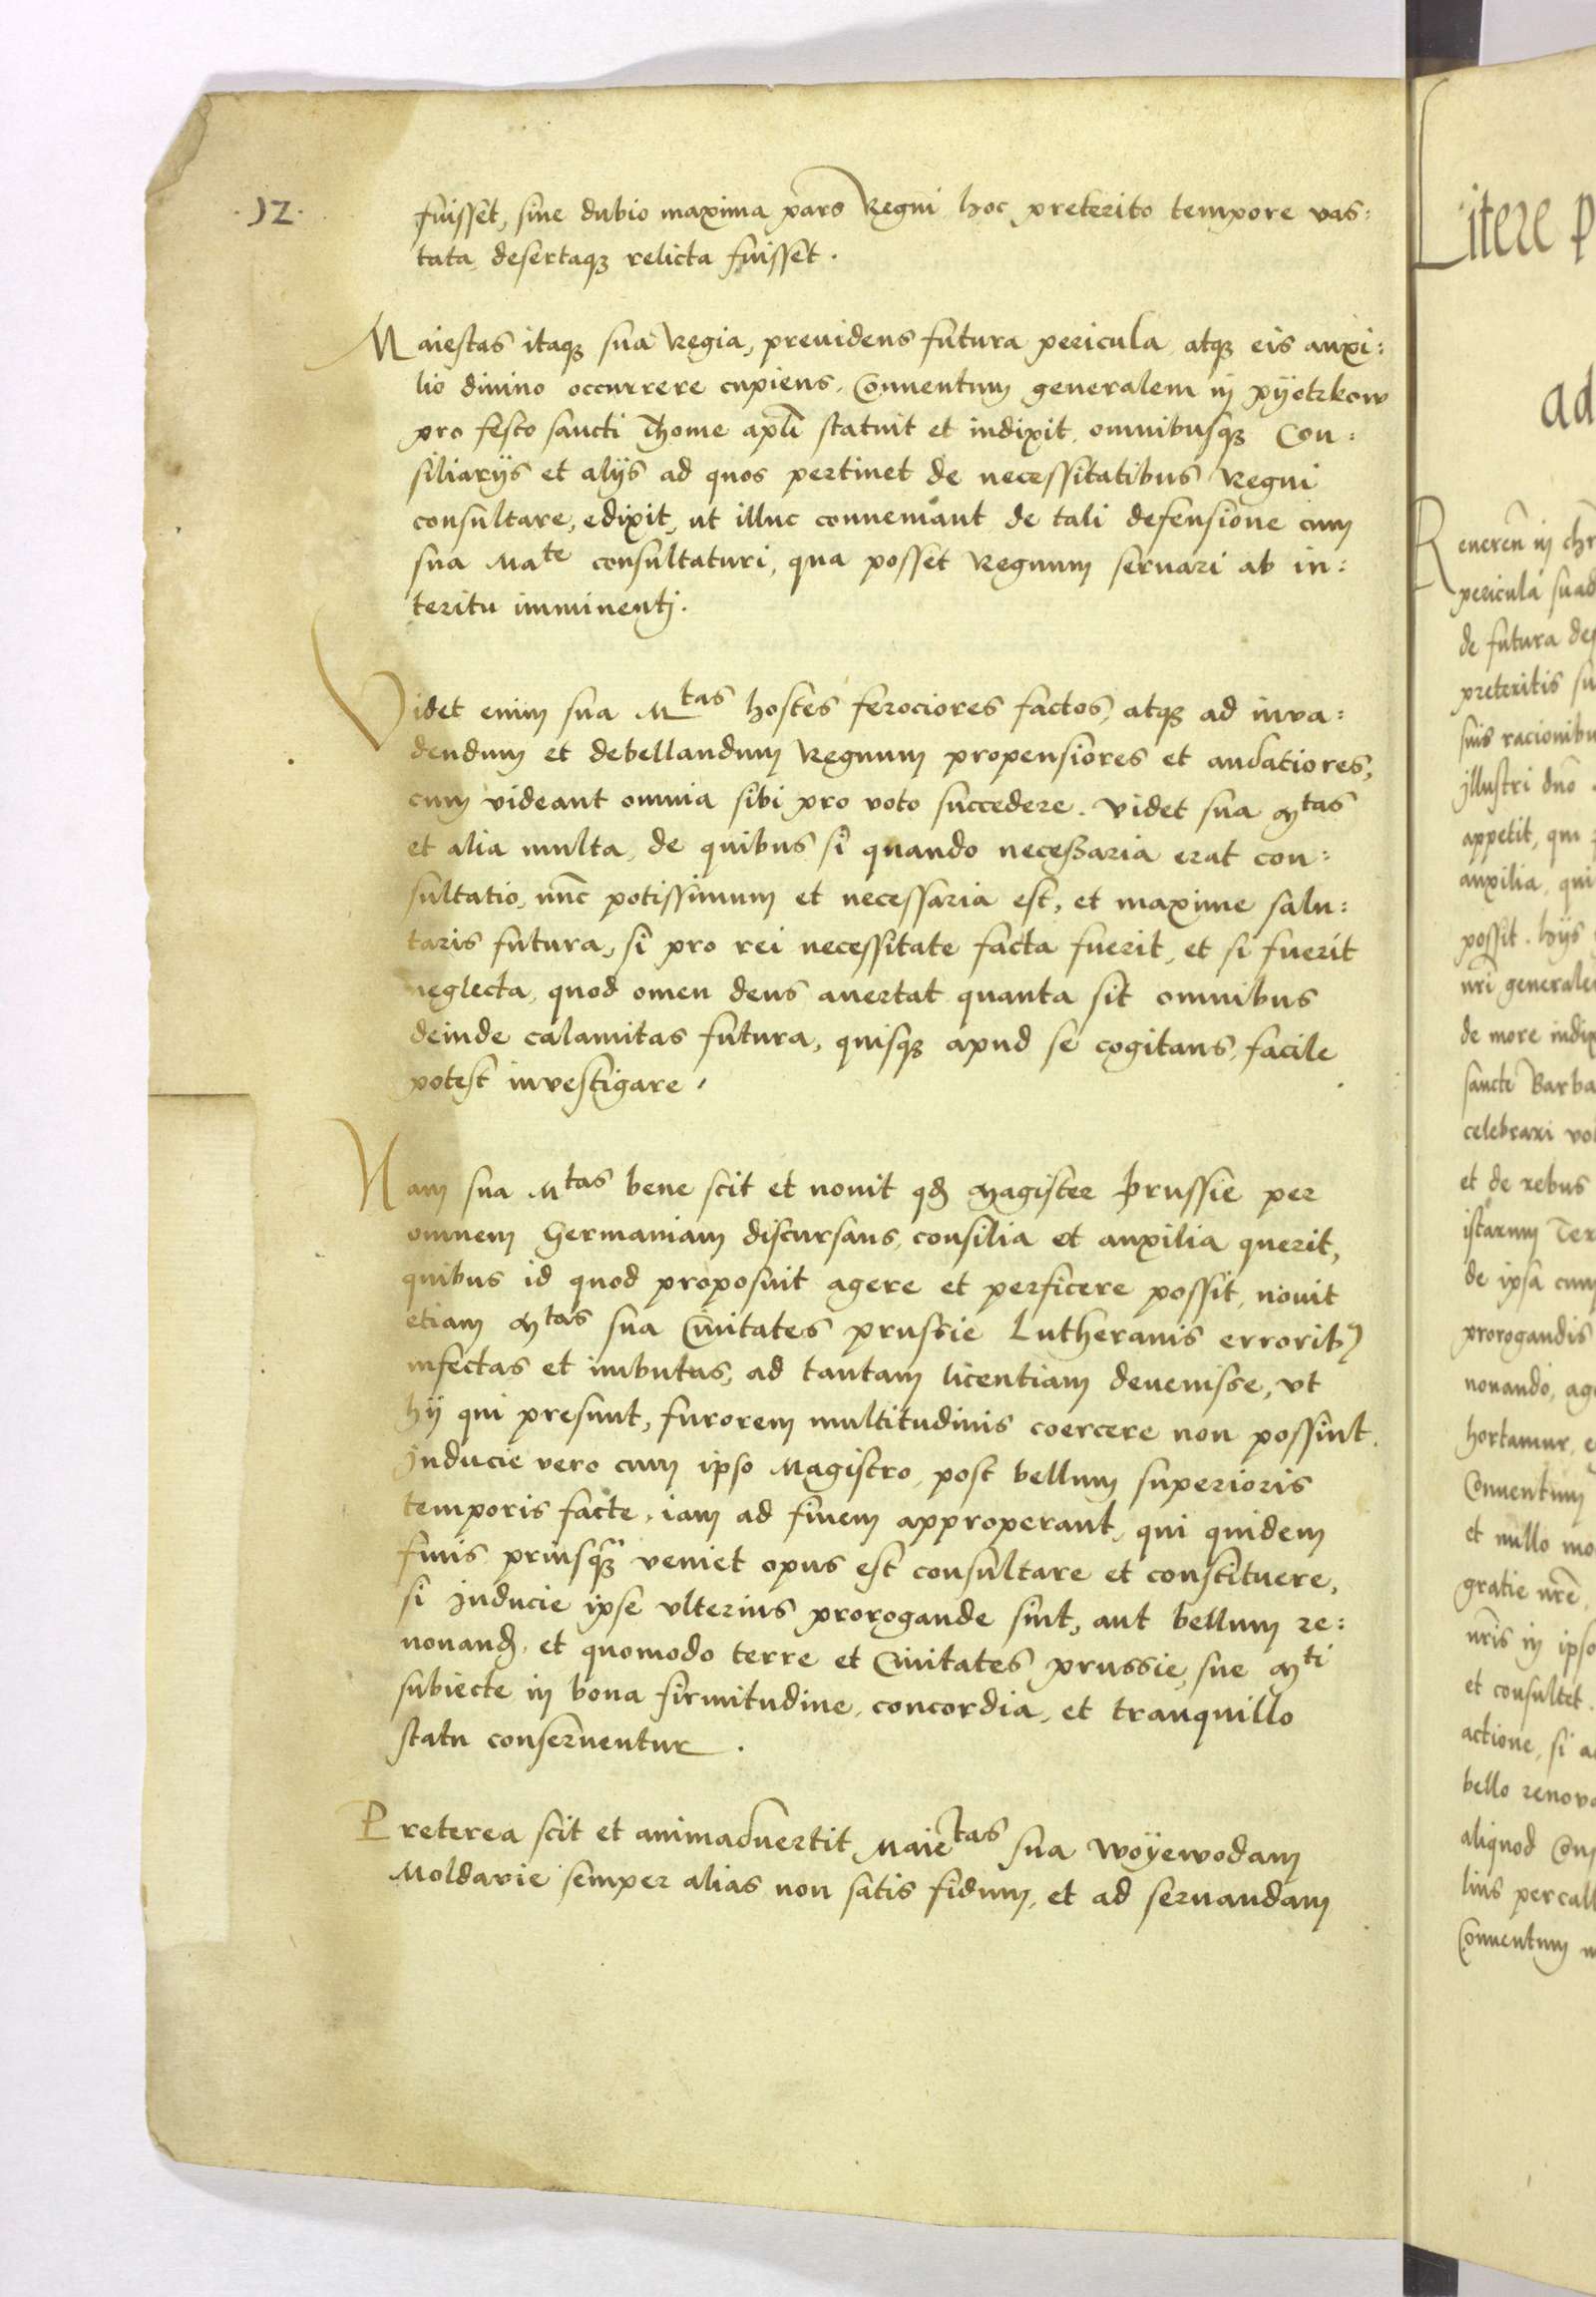 .12.
fuisset, sine dubio maxima pars Regni hoc preterito tempore vas:
tata, desertaqꝫ relicta fuisset.
Maiestas itaqꝫ sua Regia, preuidens futura pericula, atqꝫ eis auxi:
lio diuino occurrere cupiens, Conuentum generalem in pÿotrkow
pro festo sancti Thome apłi statuit et indixit, omnibusqꝫ Con:
siliarijs et alijs ad quos pertinet de necessitatibus Regni
consultare, edixit, ut illuc conueniant de tali defensione cum
sua Mate consultaturi, qua posset Regnum seruari ab in:
teritu imminentj.
Videt enim sua Mtas hostes ferociores factos, atqꝫ ad inva:
dendum et debellandum Regnum propensiores et audatiores,
cum videant omnia sibi pro voto succedere. videt sua Mtas
et alia multa, de quibus si quando neceßaria erat con:
sultatio, nūc potissimum et necessaria est, et maxime salu:
taris futura, si pro rei necessitate facta fuerit, et si fuerit
neglecta, quod omen deus auertat quanta sit omnibus
deinde calamitas futura, quisqꝫ apud se cogitans, facile
potest investigare,
Nam sua Mtas bene scit et nouit qđ Magister Prussie per
omnem Germaniam discursans, consilia et auxilia querit,
quibus id quod proposuit agere et perficere possit, nouit
etiam Mtas sua Ciuitates prussie Lutheranis erroribꝰ
infectas et imbutas, ad tantam licentiam deuenisse, vt
hij qui presunt, furorem multitudinis coercere non possint.
Inducie vero cum ipso Magistro, post bellum superioris
temporis facte, iam ad finem approperant, qui quidem
finis priusqꝫ̃ veniet opus est consultare et constituere,
si Inducie ipse vlterius prorogande sint, aut bellum re:
nouanđ, et quomodo terre et Ciuitates prussie, sue Mti
subiecte in bona firmitudine, concordia, et tranquillo
statu conseruentur.
Preterea scit et animaduertit Maietas sua woÿewodam
Moldavie semper alias non satis fidum, et ad seruandam
Litere p
ad
Reueren̄ in chr
pericula suad
de futura
preteritis su
suis racionibu
Illustri dn̄o
appetit, qui
auxilia, qui
possit. hijs
nr̄i generale
de more indix
sancte Barba
celebrari vo
et de rebus
istarum Ter
de ipsa cum
prorogandis
nouando, ag
hortamur, e
Conuentum
et nullo mo
gratie nr̄e
nr̄is in ipso
et consultet.
actione, si a
bello renova
aliquod Con
lius percall
Conuentum